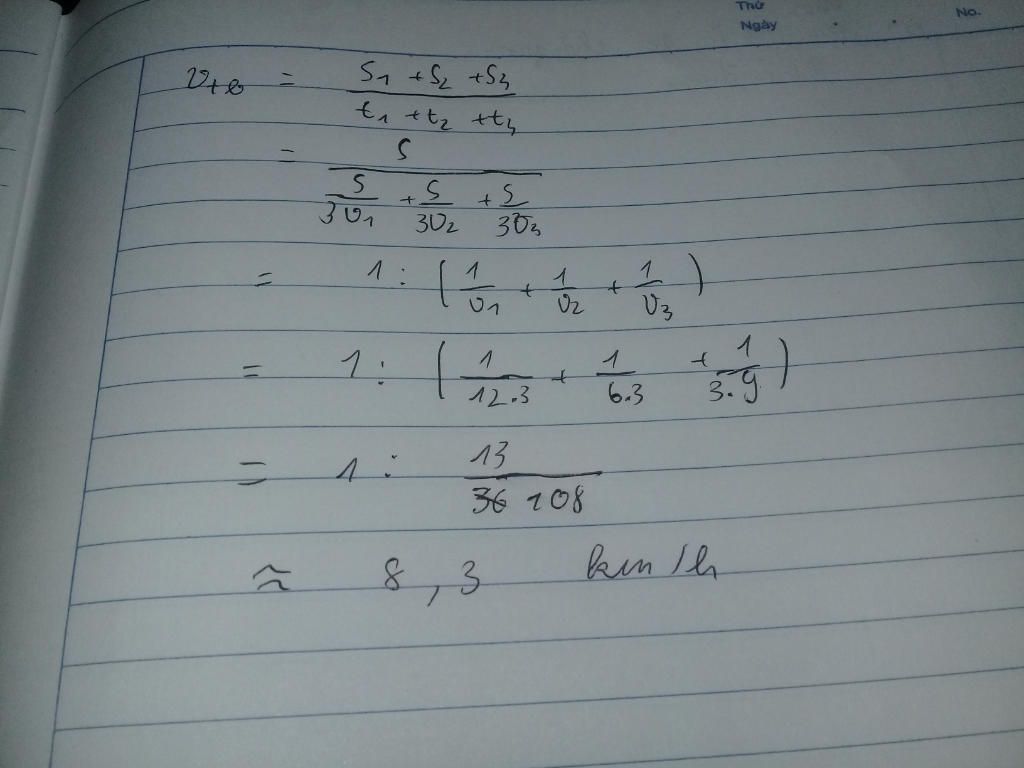 Thứ
Ngày . . No.
v_tb = (S1 + S2 + S3) / (t1 + t2 + t3)
= S / (S/(3v1) + S/(3v2) + S/(3v3))
= 1 : (1/v1 + 1/v2 + 1/v3)
= 1 : (1/(12.3) + 1/(6.3) + 1/(3.9))
= 1 : 13/108
≈ 8,3 km/h